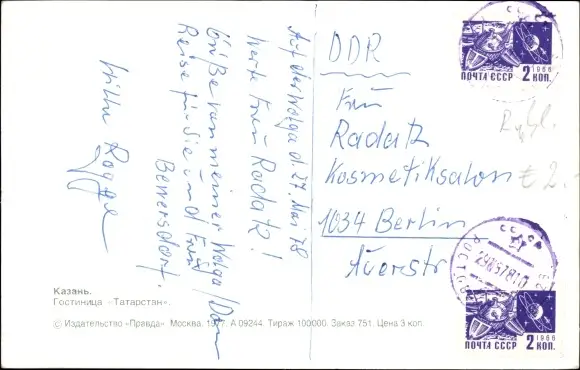 Auf der Wolga d. 27. Mai 78
Werte Frau Radatz!
Grüße von meiner Wolga/Don
Reise für Sie und Frau
Bewersdorf.
Rogge
DDR
Frau
Radatz
Kosmetiksalon
1034 Berlin
Auerstr
€ 2.-
1966
ПОЧТА СССР 2 КОП.
СССР
290578
1966
ПОЧТА СССР 2 КОП.
Казань.
Гостиница «Татарстан».
© Издательство «Правда» Москва. 1977. А 09244. Тираж 100000. Заказ 751. Цена 3 коп.